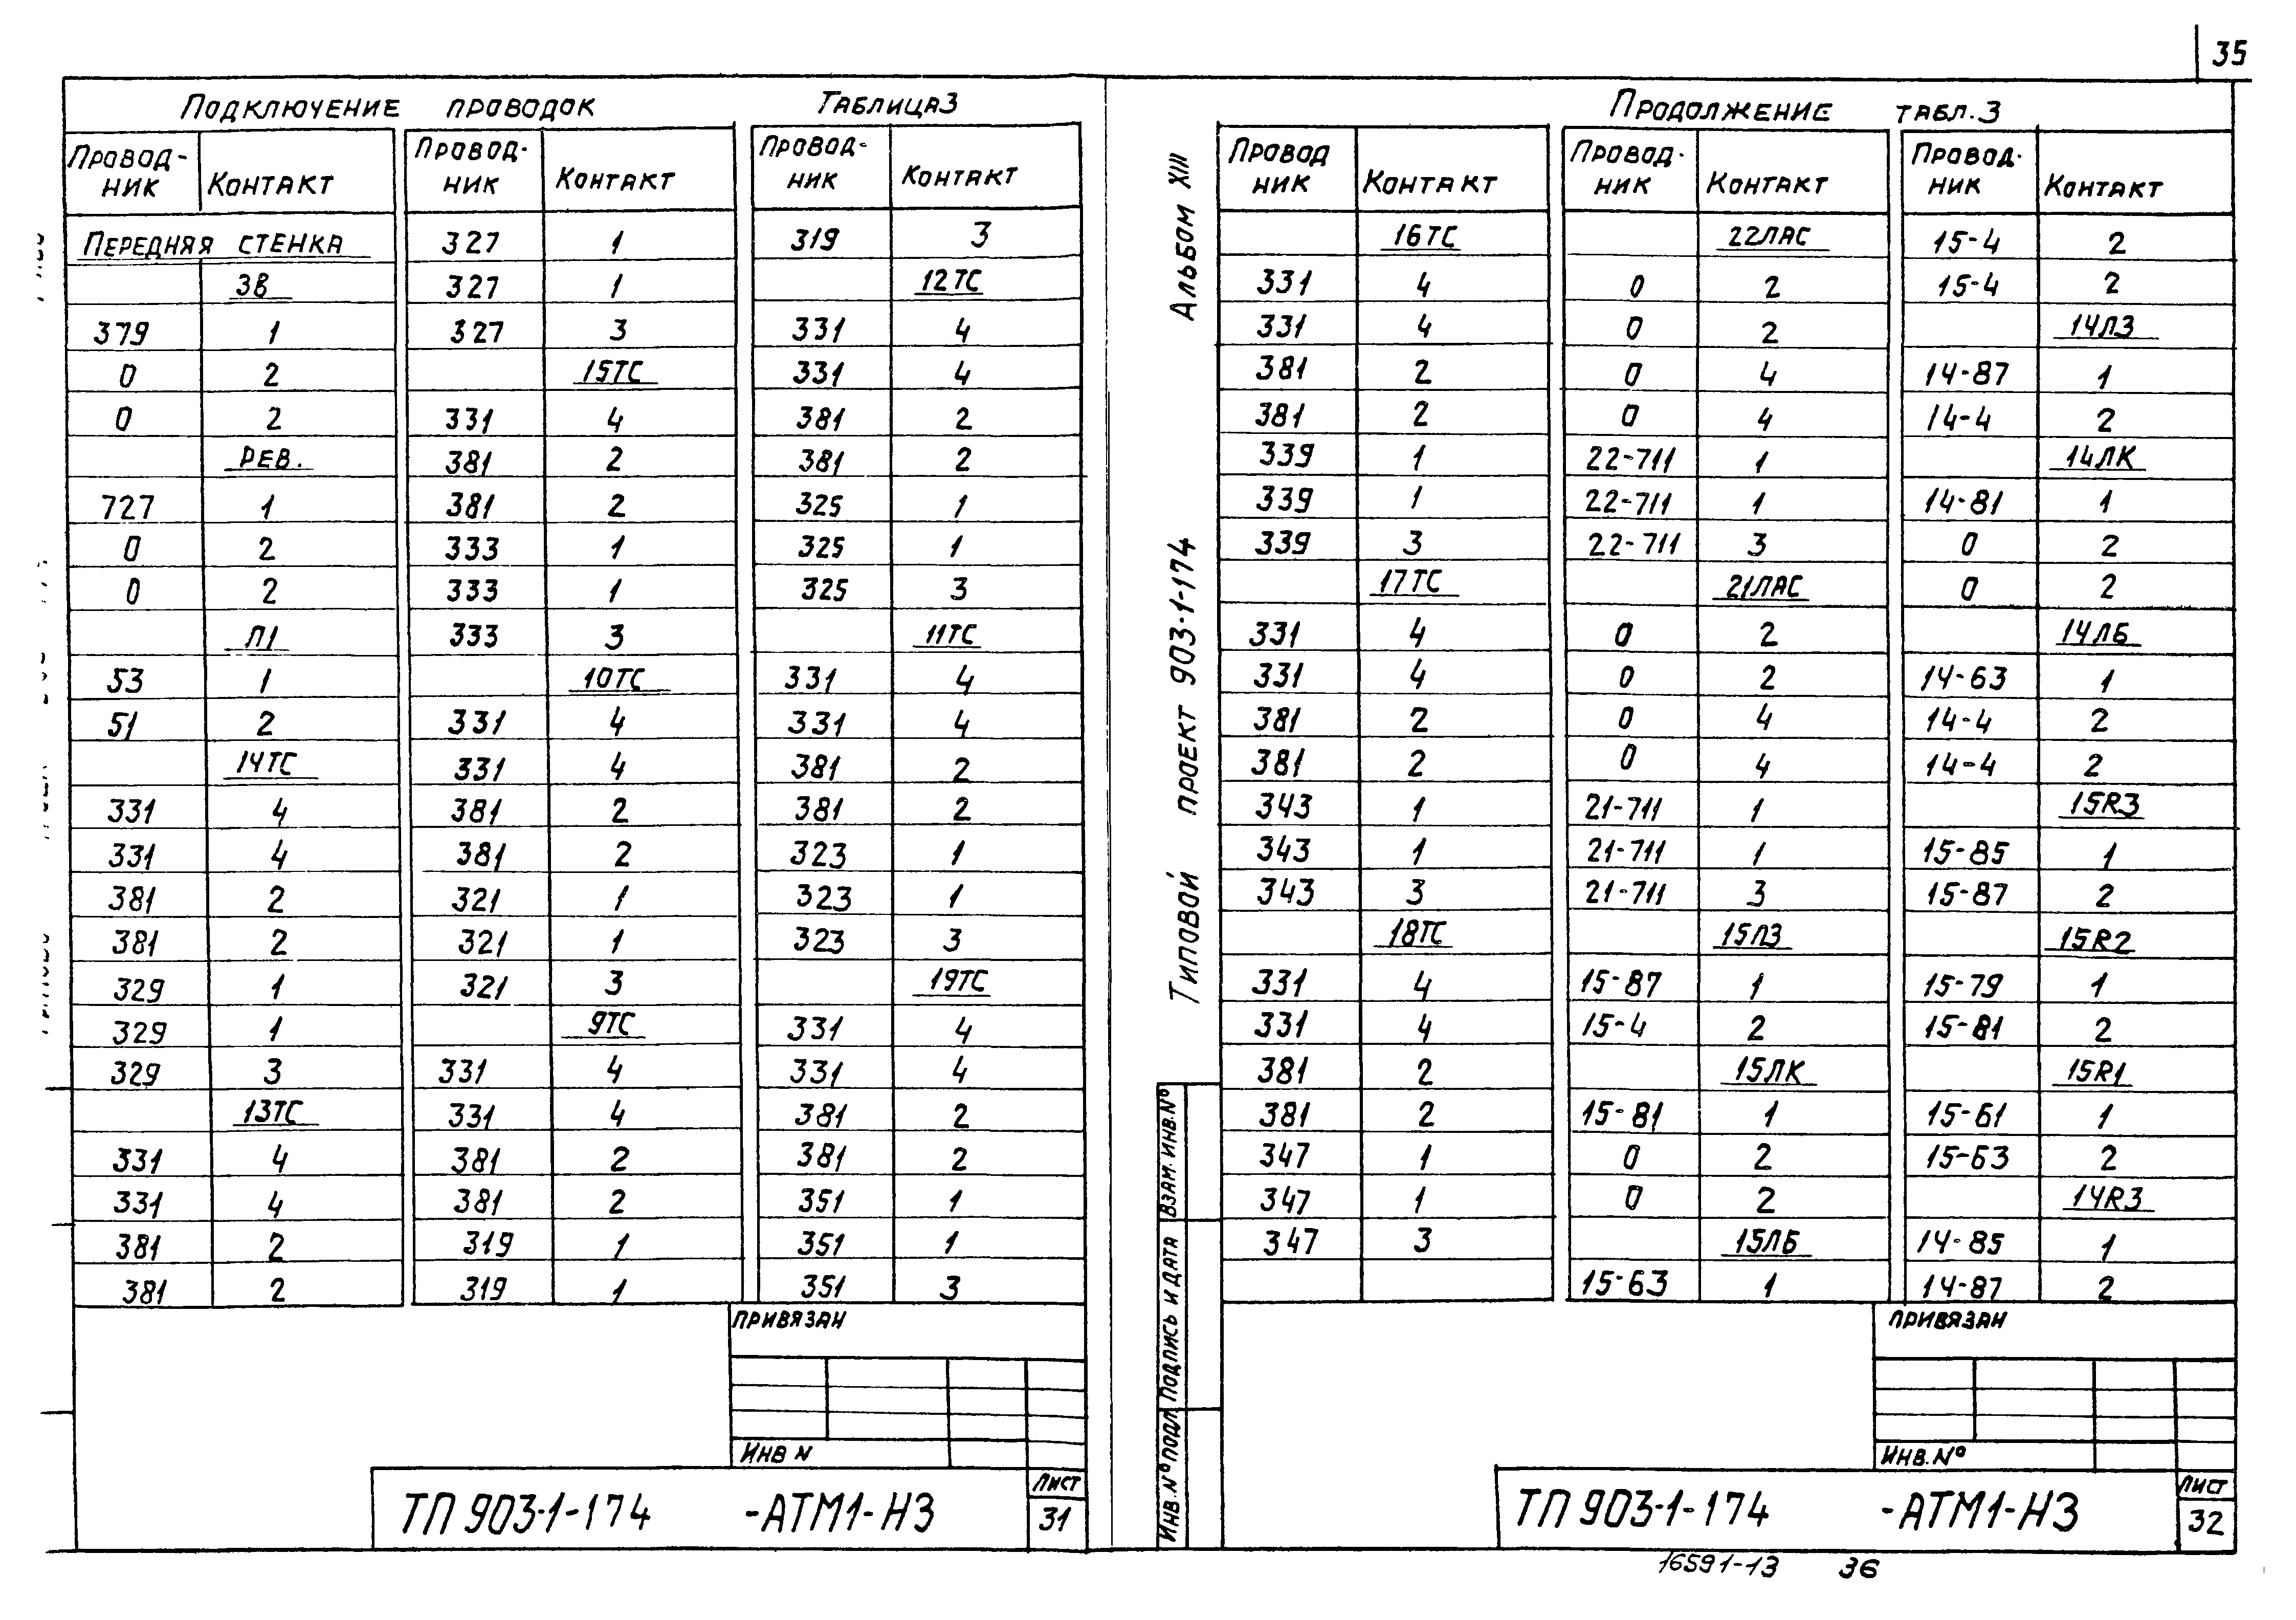 35
Подключение проводок Таблица 3
Провод-ник Контакт Провод-ник Контакт Провод-ник Контакт
Передняя стенка 327 1 319 3
3В 327 1 12ТС
379 1 327 3 331 4
0 2 15ТС 331 4
0 2 331 4 381 2
РЕВ. 381 2 381 2
727 1 381 2 325 1
0 2 333 1 325 1
0 2 333 1 325 3
Л1 333 3 11ТС
53 1 10ТС 331 4
51 2 331 4 331 4
14ТС 331 4 381 2
331 4 381 2 381 2
331 4 381 2 323 1
381 2 321 1 323 1
381 2 321 1 323 3
329 1 321 3 19ТС
329 1 9ТС 331 4
329 3 331 4 331 4
13ТС 331 4 381 2
331 4 381 2 381 2
331 4 381 2 351 1
381 2 319 1 351 1
381 2 319 1 351 3
Привязан
Инв N
ТП 903-1-174 -АТМ1-НЗ
Лист
31
Альбом XIII
Типовой проект 903-1-174
Взам. инв. №
Подпись и дата
Инв. № подл
Продолжение табл. 3
Провод ник Контакт Провод-ник Контакт Провод-ник Контакт
16ТС 22ЛАС 15-4 2
331 4 0 2 15-4 2
331 4 0 2 14ЛЗ
381 2 0 4 14-87 1
381 2 0 4 14-4 2
339 1 22-711 1 14ЛК
339 1 22-711 1 14-81 1
339 3 22-711 3 0 2
17ТС 21ЛАС 0 2
331 4 0 2 14ЛБ
331 4 0 2 14-63 1
381 2 0 4 14-4 2
381 2 0 4 14-4 2
343 1 21-711 1 15R3
343 1 21-711 1 15-85 1
343 3 21-711 3 15-87 2
18ТС 15ЛЗ 15R2
331 4 15-87 1 15-79 1
331 4 15-4 2 15-81 2
381 2 15ЛК 15R1
381 2 15-81 1 15-61 1
347 1 0 2 15-63 2
347 1 0 2 14R3
347 3 15ЛБ 14-85 1
15-63 1 14-87 2
Привязан
Инв. №
ТП 903-1-174 -АТМ1-НЗ
Лист
32
16591-13 36